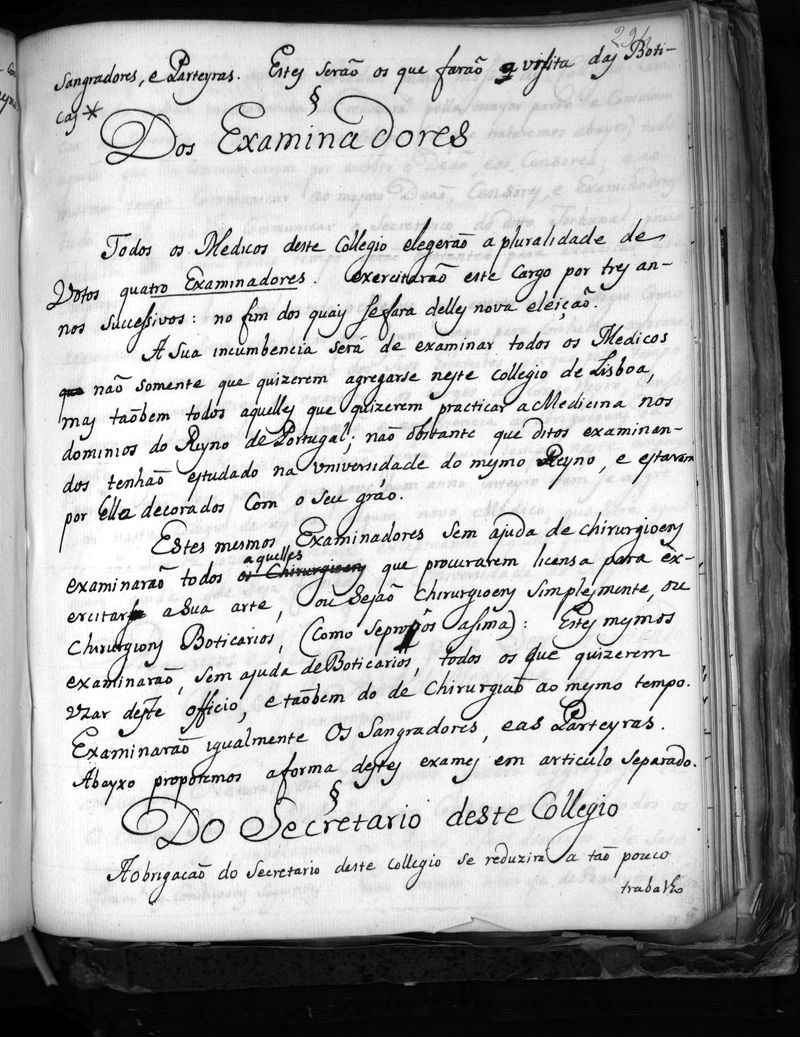 294
Sangradores, e Parteyras. Estes serão os que farão a visita das Boti-
cas *
§
Dos Examinadores
Todos os Medicos deste Collegio elegerão a pluralidade de
Votos quatro Examinadores. exercitarão este Cargo por tres an-
nos successivos: no fim dos quais se fara delles nova eleição.
A Sua incumbencia será de examinar todos os Medicos
que não somente que quizerem agregarse neste collegio de Lisboa,
mas taõbem todos aquelles que quizerem practicar a Medicina nos
dominios do Reyno de Portugal; não obstante que ditos examinan-
dos tenhão estudado na Universidade do mesmo Reyno, e estavam
por Ella decorados Com o seu gráo.
Estes mesmos Examinadores sem ajuda de chirurgioens
aquelles
examinarão todos os Chirurgioens que procurarem licensa para ex-
ercitar a Sua arte, ou Sejão Chirurgioens Simplesmente, ou
Chirurgions Boticarios, (Como Se propôs asima): Estes mesmos
examinarão, sem ajuda de Boticarios, todos os que quizerem
uzar deste officio, e taõbem do de Chirurgiaõ ao mesmo tempo.
Examinarão igualmente Os Sangradores, e as Parteyras.
Abayxo proporemos a forma destes exames em articulo separado.
§
Do Secretario deste Collegio
A obrigacão do Secretario deste Collegio se reduzirá a tão pouco
trabalho